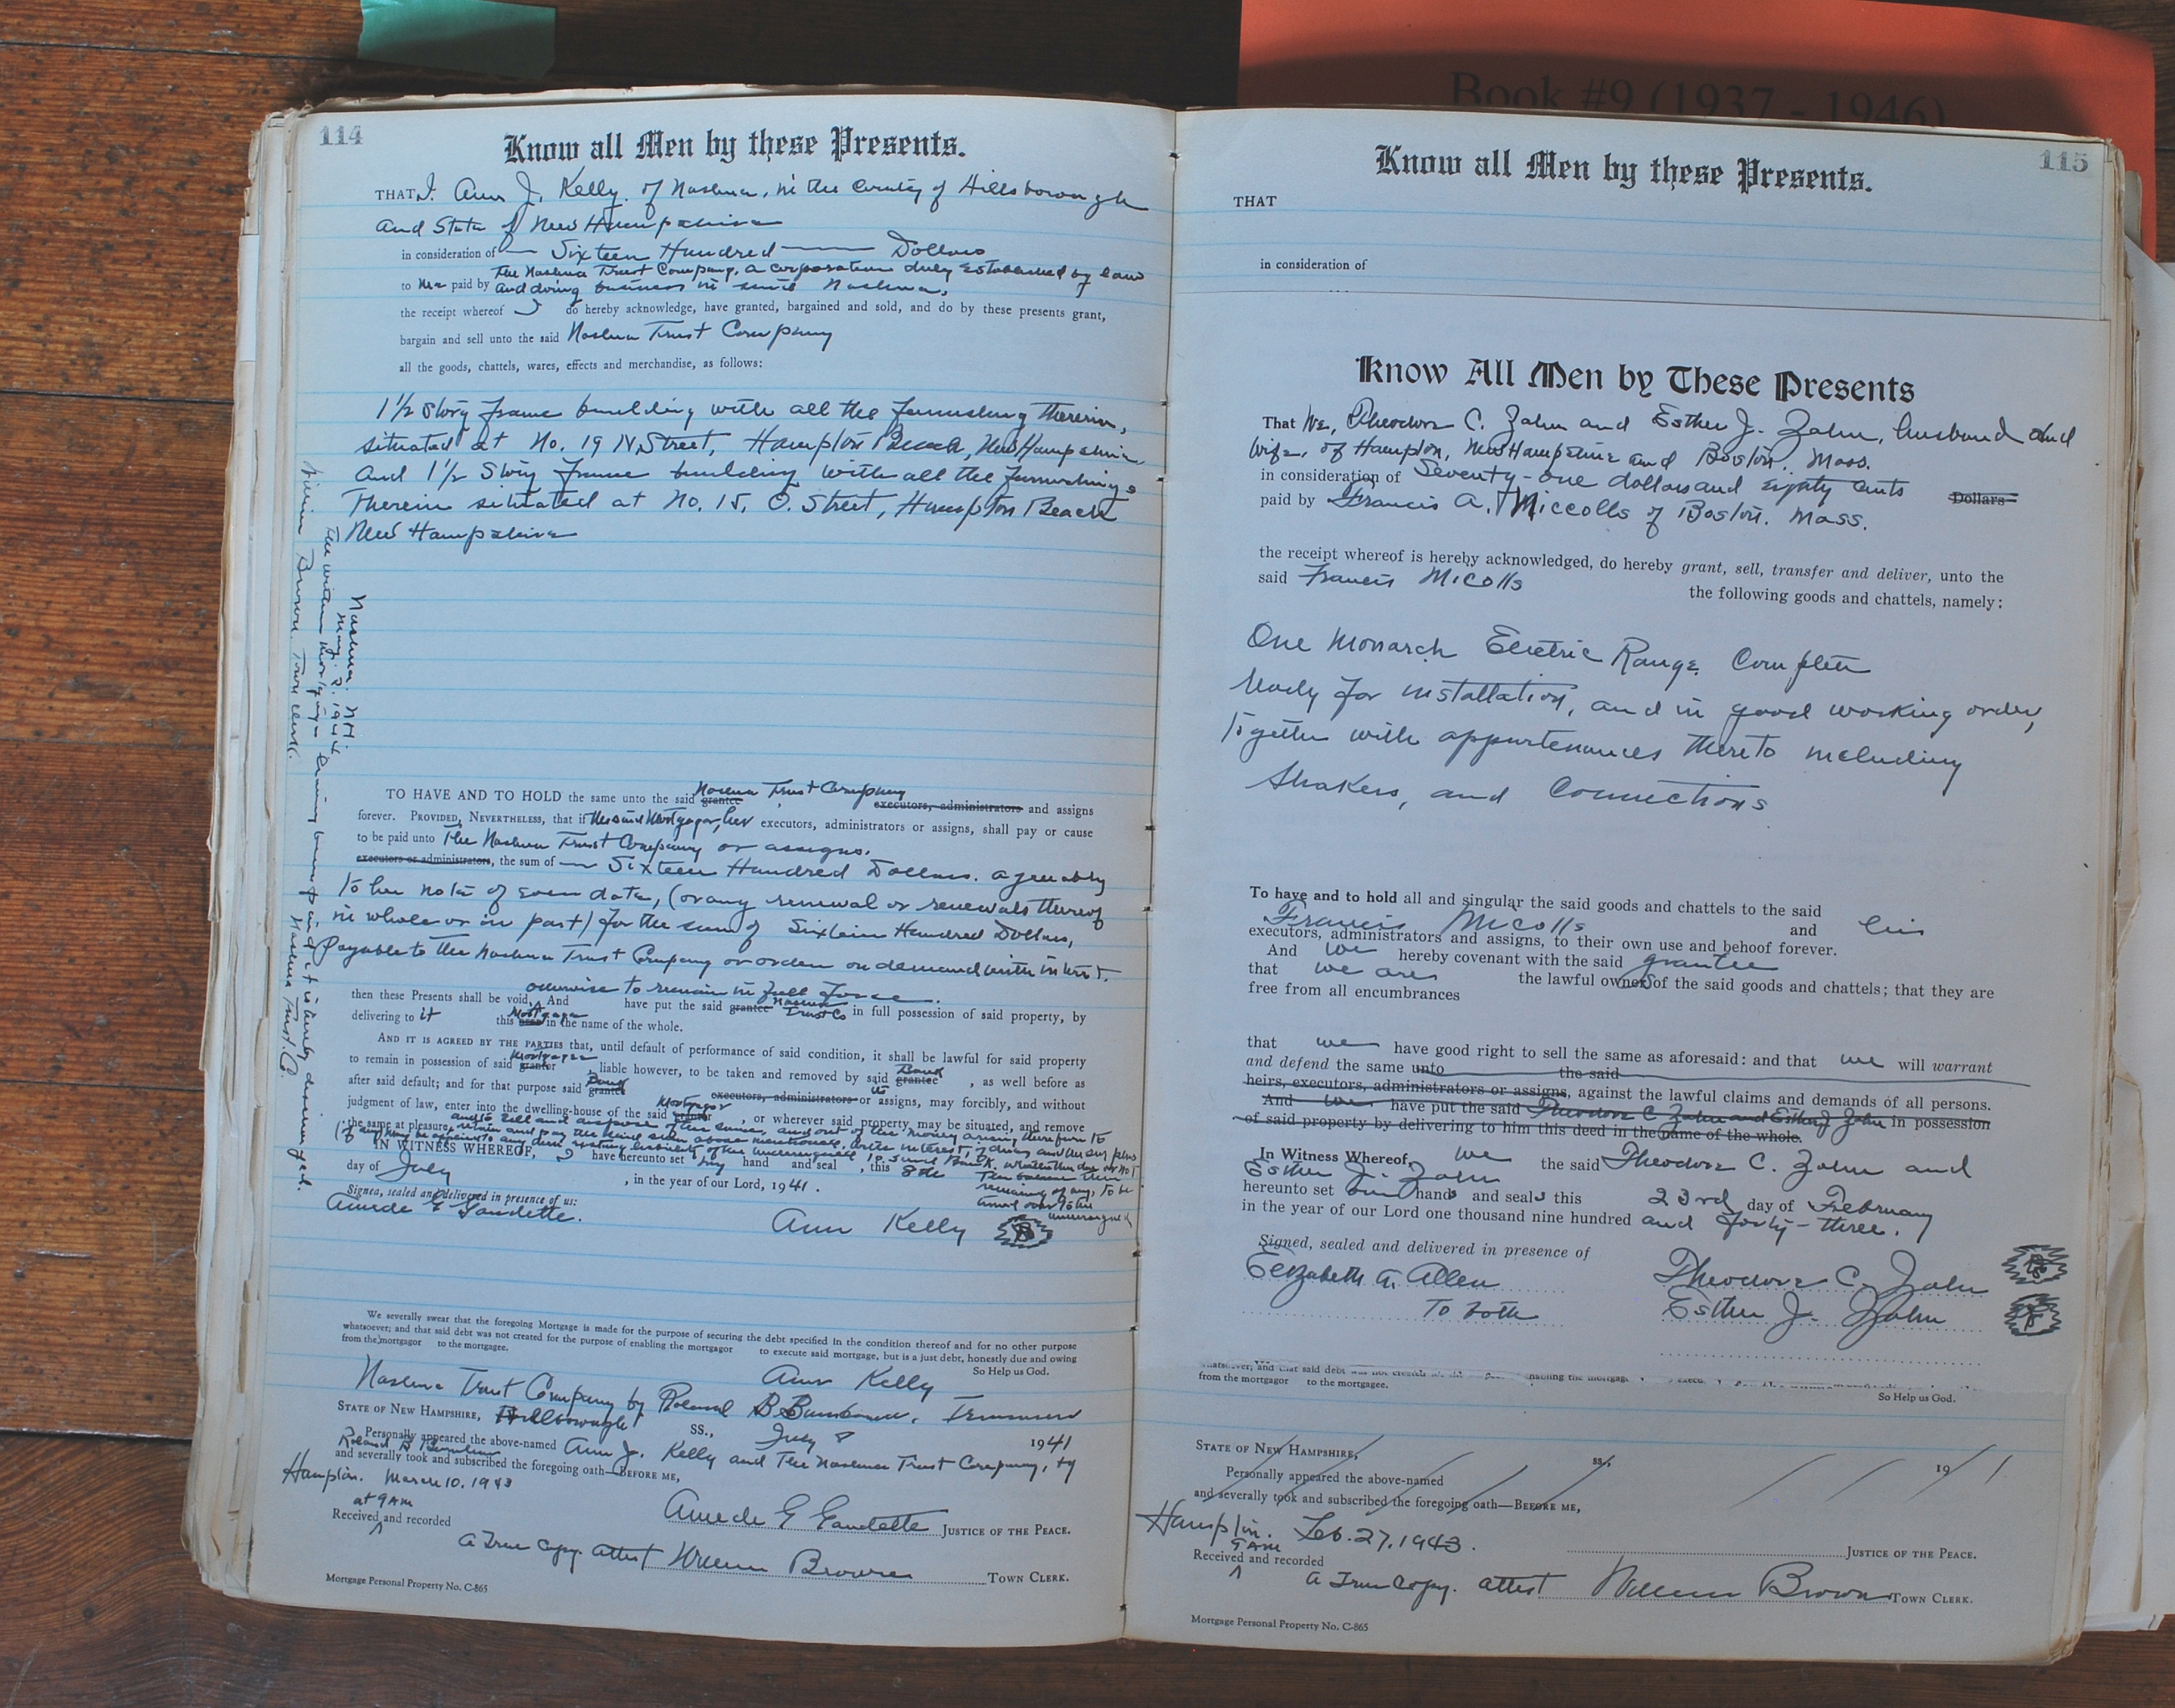 Book #9 (1937 - 1946)
114
Know all Men by these Presents.
THAT I. Ann J. Kelly. of Nashua, in the County of Hillsborough
and State of New Hampshire
in consideration of Sixteen Hundred Dollars
The Nashua Trust Company, a corporation duly established by law
to me paid by and doing business in said Nashua,
the receipt whereof I do hereby acknowledge, have granted, bargained and sold, and do by these presents grant,
bargain and sell unto the said Nashua Trust Company
all the goods, chattels, wares, effects and merchandise, as follows:
1½ Story frame building with all the furnishing therein,
situated at No. 19 N Street, Hampton Beach, New Hampshire,
and 1½ Story frame building with all the furnishings
Therein situated at No. 15, O. Street, Hampton Beach
New Hampshire
Nashua. N.H.
May. 2. 1944
The within mortgage having been paid it is hereby discharged.
Nashua Trust. Co
William Brown. Town Clerk.
TO HAVE AND TO HOLD the same unto the said grantee Nashua Trust Company executors, administrators and assigns
forever. PROVIDED, NEVERTHELESS, that if the said Mortgagor, her executors, administrators or assigns, shall pay or cause
to be paid unto The Nashua Trust Company or assigns.
executors or administrators, the sum of Sixteen Hundred Dollars. agreeably
to her note of even date, (or any renewal or renewals thereof
in whole or in part) for the sum of Sixteen Hundred Dollars,
Payable to the Nashua Trust Company or order on demand with interest.
otherwise to remain in full force.
then these Presents shall be void, And have put the said grantee Nashua Trust Co in full possession of said property, by
delivering to it this Mortgage in the name of the whole.
AND IT IS AGREED BY THE PARTIES that, until default of performance of said condition, it shall be lawful for said property
to remain in possession of said grantor Mortgagor, liable however, to be taken and removed by said grantee Bank, as well before as
after said default; and for that purpose said grantee Bank executors, administrators or its assigns, may forcibly, and without
judgment of law, enter into the dwelling-house of the said grantor Mortgagor, or wherever said property, may be situated, and remove
the same at pleasure, and to sell and dispose of the same, and out of the money arising therefrom to
retain and pay the said sum above mentioned,
IN WITNESS WHEREOF, I have hereunto set my hand and seal, this 8th
day of July, in the year of our Lord, 1941.
Signed, sealed and delivered in presence of us:
Amede E Gaudette.
Ann Kelly
We severally swear that the foregoing Mortgage is made for the purpose of securing the debt specified in the condition thereof and for no other purpose
whatsoever; and that said debt was not created for the purpose of enabling the mortgagor to execute said mortgage, but is a just debt, honestly due and owing
from the mortgagor to the mortgagee. So Help us God.
Ann Kelly
Nashua Trust Company by Roland B Burnham, Treasurer
STATE OF NEW HAMPSHIRE, Hillsborough SS., July 8 1941
Personally appeared the above-named Ann J. Kelly and The Nashua Trust Company, by
Roland B Burnham
and severally took and subscribed the foregoing oath—BEFORE ME,
Hampton. March 10. 1943
at 9 AM
Amede E Gaudette JUSTICE OF THE PEACE.
Received and recorded
A True Copy. attest William Brown TOWN CLERK.
Mortgage Personal Property No. C-865
115
Know all Men by these Presents.
THAT
in consideration of
Know All Men by These Presents
That We, Theodore C. Zahn and Esther J. Zahn, husband and
wife, of Hampton, New Hampshire and Boston, Mass.
in consideration of Seventy-one dollars and eighty cents Dollars
paid by Francis A. Miccolls of Boston. Mass.
the receipt whereof is hereby acknowledged, do hereby grant, sell, transfer and deliver, unto the
said Francis McColls the following goods and chattels, namely:
One Monarch Electric Range Complete
ready for installation, and in good working order,
together with appurtenances thereto including
Shakers, and Connections
To have and to hold all and singular the said goods and chattels to the said
Francis McColls and his
executors, administrators and assigns, to their own use and behoof forever.
And we hereby covenant with the said grantee
that we are the lawful owners of the said goods and chattels; that they are
free from all encumbrances
that we have good right to sell the same as aforesaid: and that we will warrant
and defend the same unto the said
heirs, executors, administrators or assigns, against the lawful claims and demands of all persons.
And we have put the said Theodore C Zahn and Esther J Zahn in possession
of said property by delivering to him this deed in the name of the whole.
In Witness Whereof, we the said Theodore C. Zahn and
Esther J. Zahn
hereunto set our hands and seals this 23rd day of February
in the year of our Lord one thousand nine hundred and forty-three.
Signed, sealed and delivered in presence of
Elizabeth A. Allen
To both
Theodore C. Zahn
Esther J. Zahn
from the mortgagor to the mortgagee.
So Help us God.
STATE OF NEW HAMPSHIRE, ss, 19
Personally appeared the above-named
and severally took and subscribed the foregoing oath—BEFORE ME,
Hampton. Feb. 27, 1943.
9 AM
JUSTICE OF THE PEACE.
Received and recorded
A True Copy. attest William Brown TOWN CLERK.
Mortgage Personal Property No. C-865